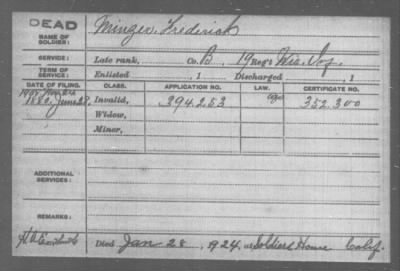 DEAD
NAME OF SOLDIER: Minger, Frederick
SERVICE: Late rank, Co. B, 19 Reg't Wis. Inf.
TERM OF SERVICE: Enlisted , 1 Discharged , 1
DATE OF FILING. CLASS. APPLICATION NO. LAW. CERTIFICATE NO.
1880, June 28, Invalid, 394.253 352.300
Widow,
Minor,
ADDITIONAL SERVICES:
REMARKS:
Died Jan 28, 1924, at Soldiers Home Calif.